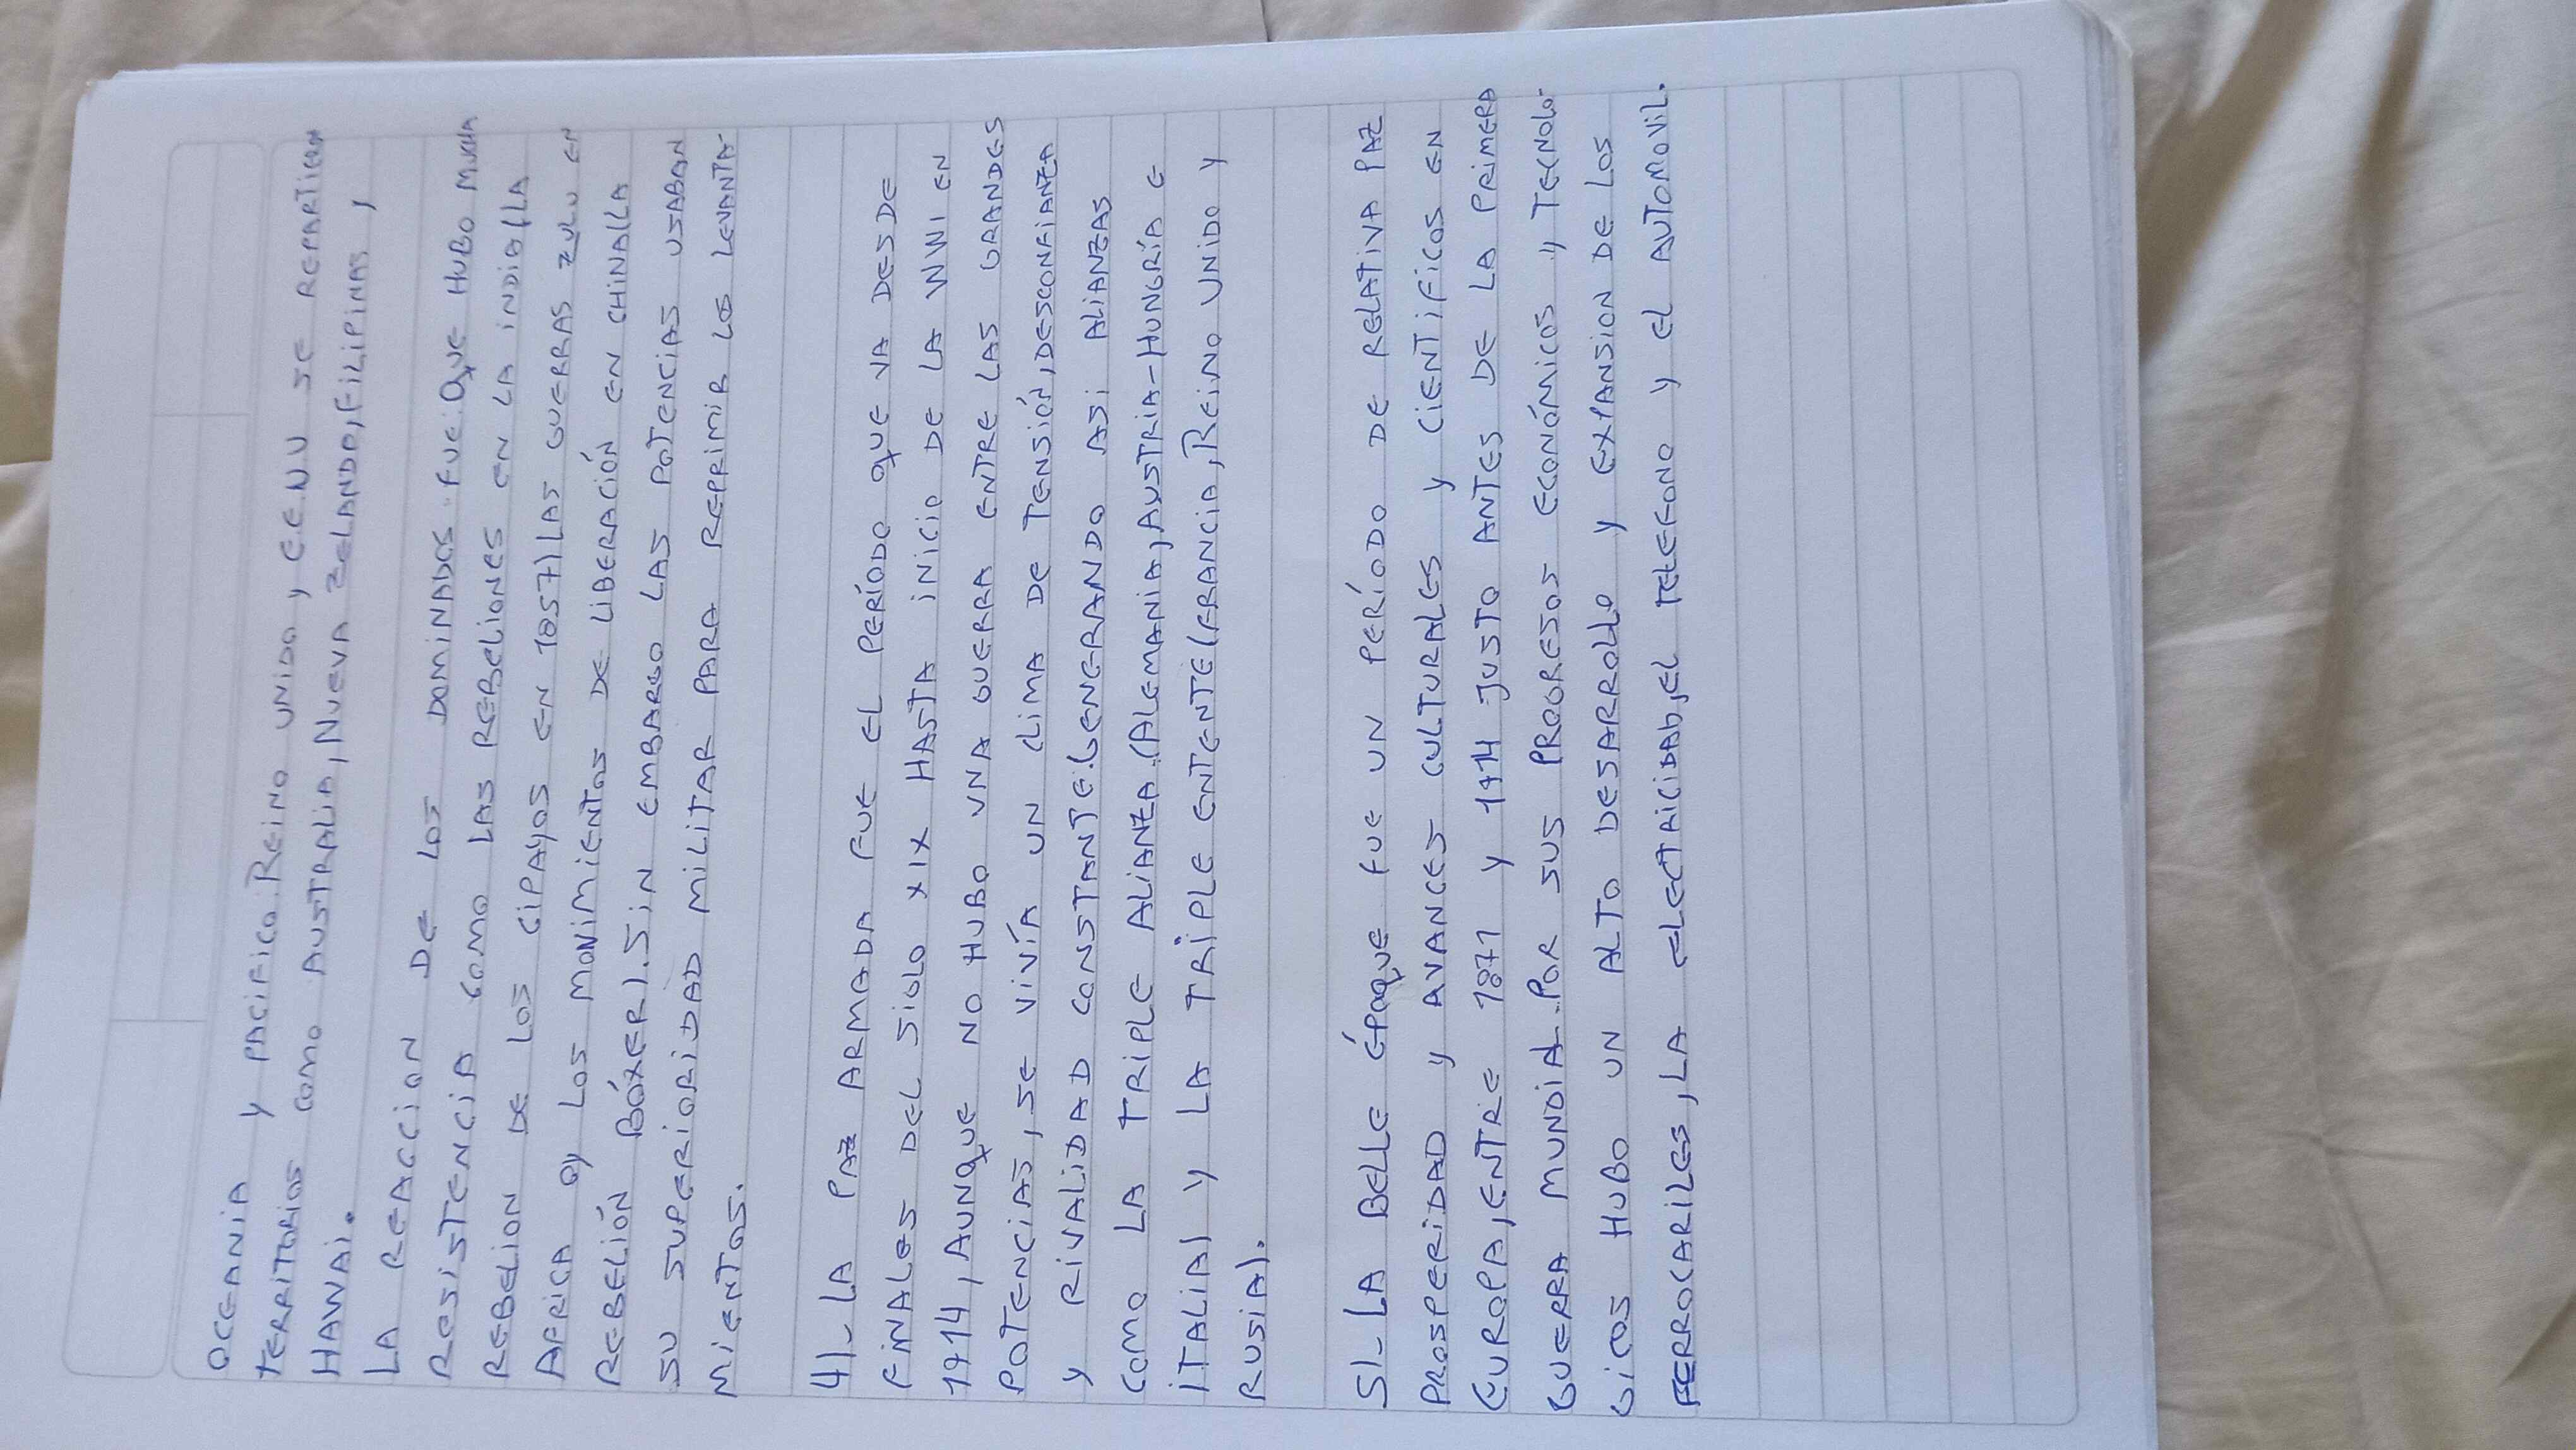 OCEANIA Y PACIFICO.REINO UNIDO Y E.E.U.U SE REPARTIERON
TERRITORIOS COMO AUSTRALIA,NUEVA ZELANDA,FILIPINAS,
HAWAI.
LA REACCION DE LOS DOMINADOS FUE:QUE HUBO MUCHA
RESISTENCIA COMO LAS REBELIONES EN LA INDIA(LA
REBELION DE LOS CIPAYOS EN 1857)LAS GUERRAS ZULU EN
AFRICA Y LOS MOVIMIENTOS DE LIBERACIÓN EN CHINA(LA
REBELIÓN BÓXER).SIN EMBARGO LAS POTENCIAS USABAN
SU SUPERIORIDAD MILITAR PARA REPRIMIR LOS LEVANTA-
MIENTOS.
4)- LA PAZ ARMADA FUE EL PERÍODO QUE VA DESDE
FINALES DEL SIGLO XIX HASTA INICIO DE LA WWI EN
1914,AUNQUE NO HUBO UNA GUERRA ENTRE LAS GRANDES
POTENCIAS,SE VIVÍA UN CLIMA DE TENSIÓN,DESCONFIANZA
Y RIVALIDAD CONSTANTE.GENERANDO ASI ALIANZAS
COMO LA TRIPLE ALIANZA.(ALEMANIA,AUSTRIA-HUNGRÍA E
ITALIA) Y LA TRIPLE ENTENTE(FRANCIA,REINO UNIDO Y
RUSIA).
5)- LA BELLE ÉPOQUE FUE UN PERÍODO DE RELATIVA PAZ
PROSPERIDAD Y AVANCES CULTURALES Y CIENTIFICOS EN
EUROPA,ENTRE 1871 Y 1914 JUSTO ANTES DE LA PRIMERA
GUERRA MUNDIAL.POR SUS PROGRESOS ECONÓMICOS Y TECNOLO-
GICOS HUBO UN ALTO DESARROLLO Y EXPANSION DE LOS
FERROCARILES,LA ELECTRICIDAD,EL TELEFONO Y EL AUTOMOVIL.